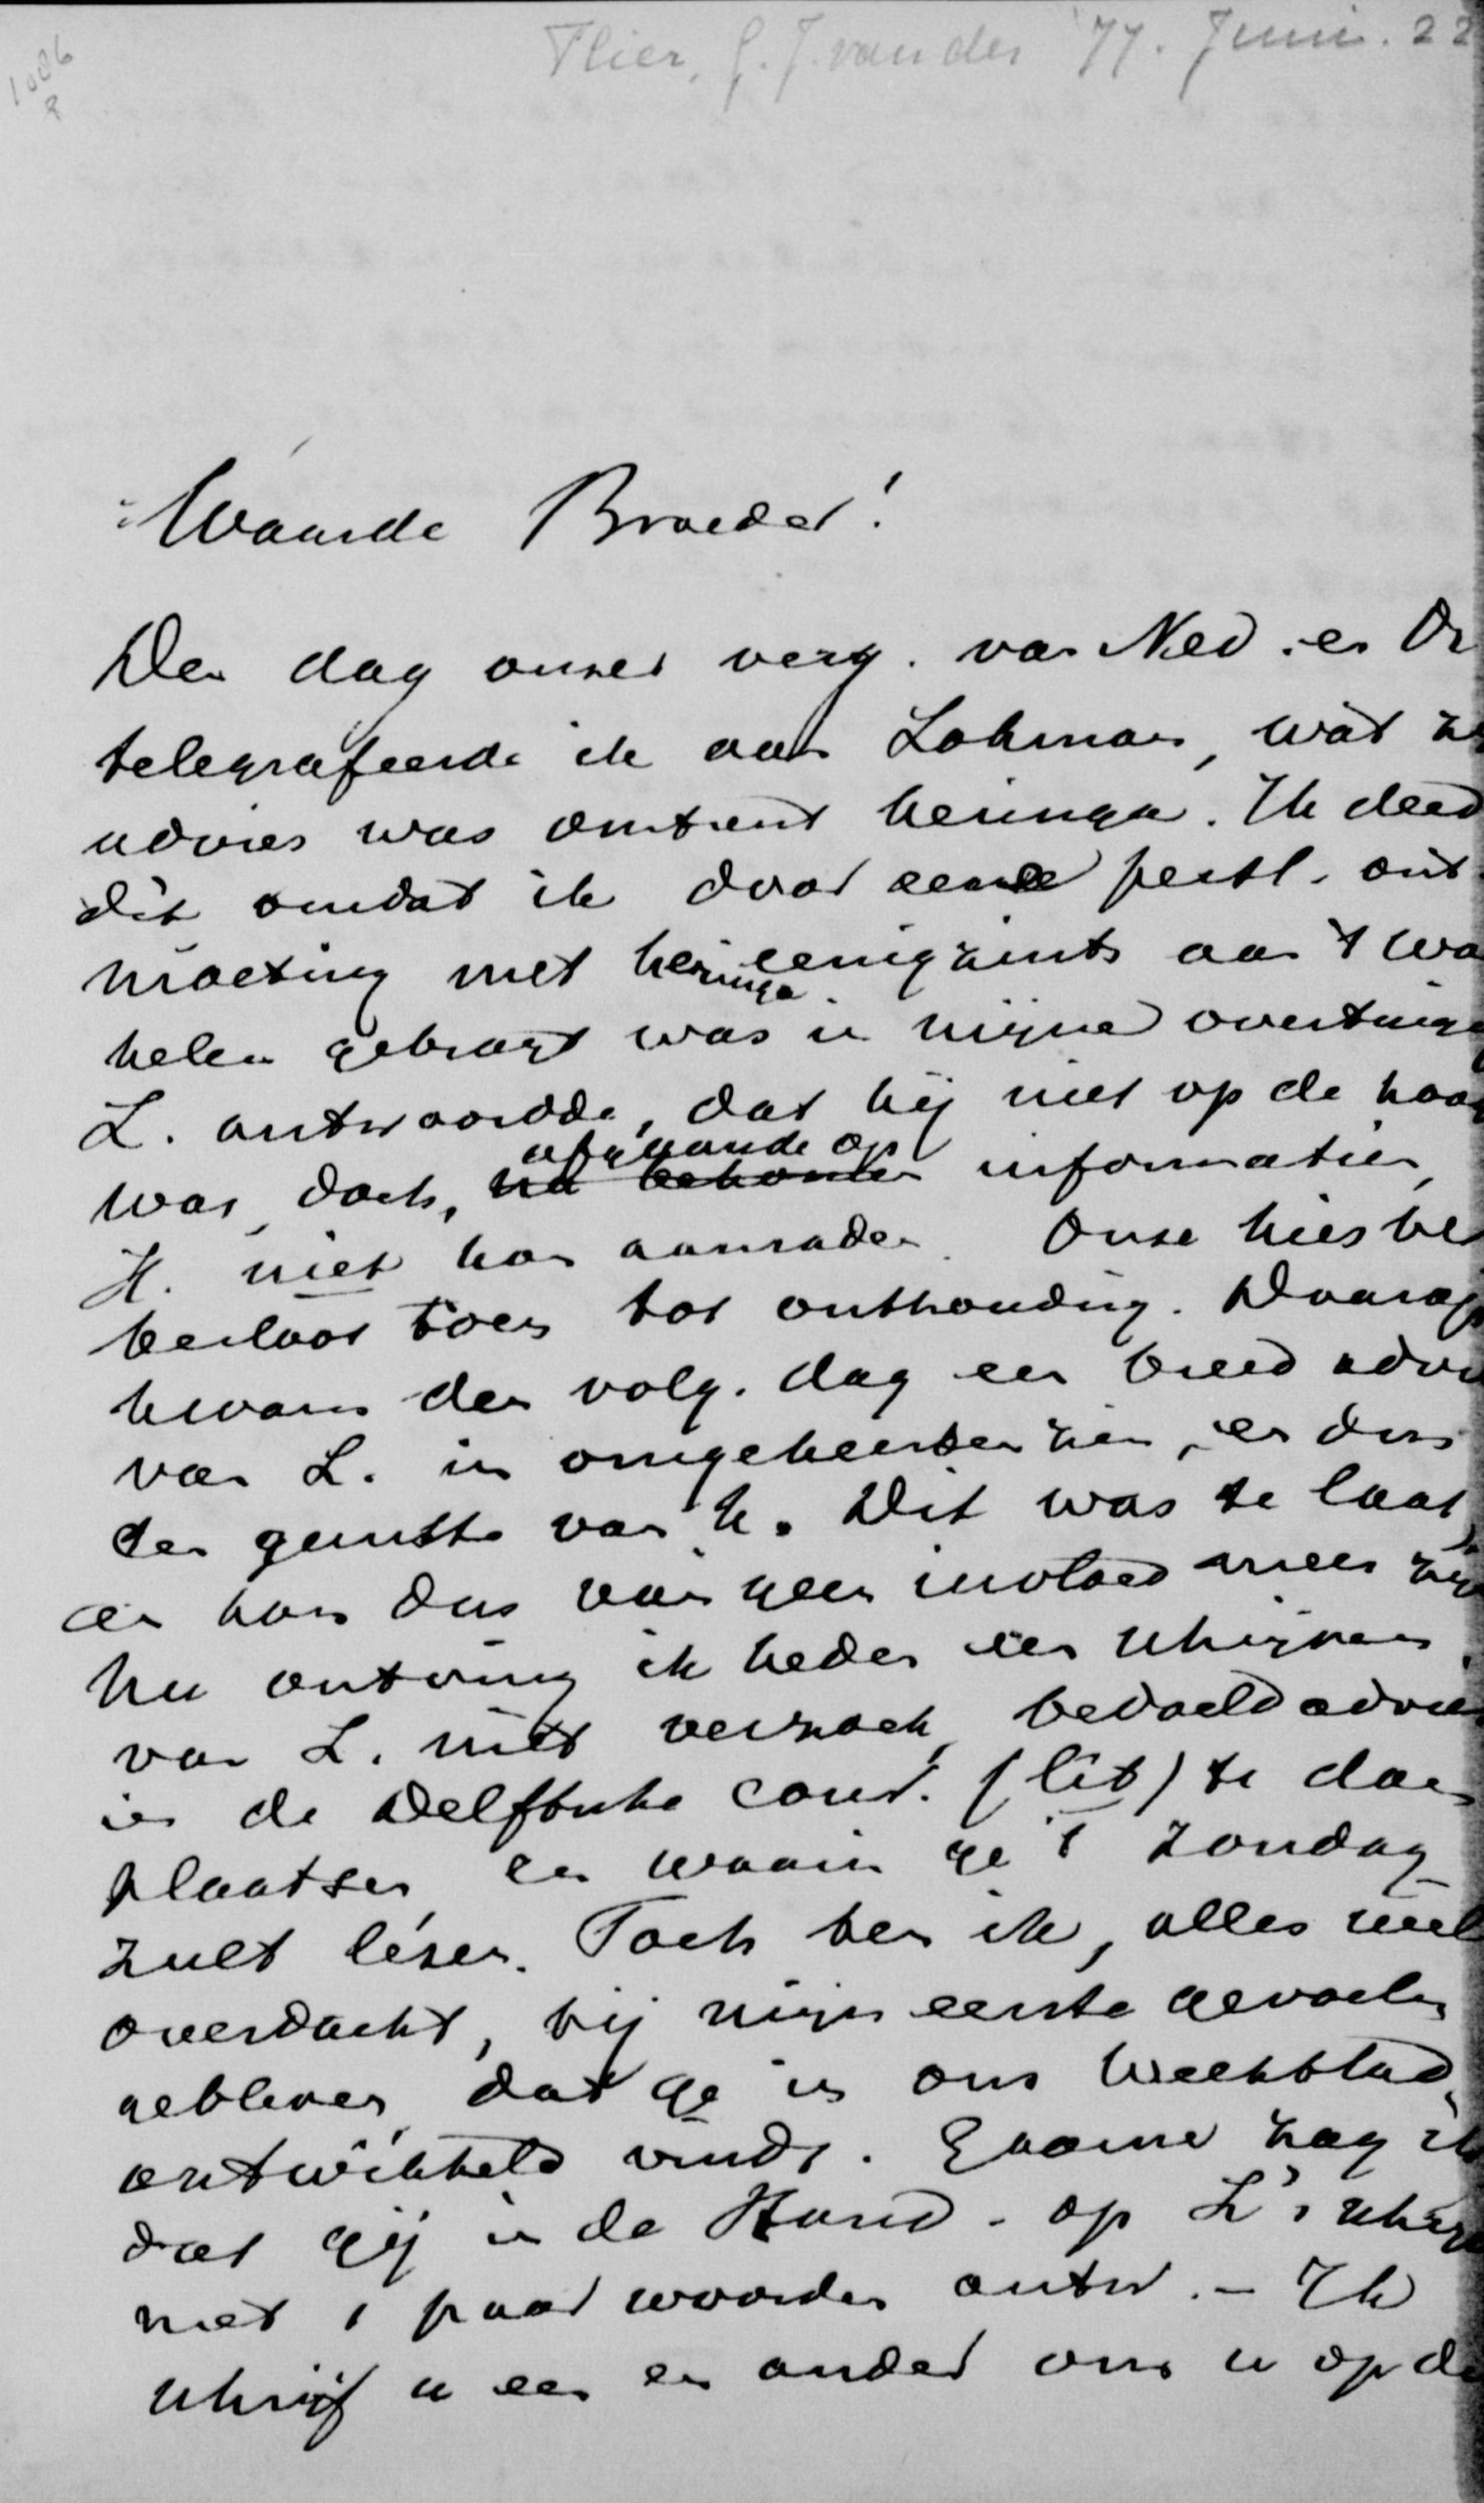 Flier, G. J. van der '77. Juni. 22
1006
Waarde Broeder!
Den dag onzer verg. van Ned. en Or
telegrafeerde ik aan Lohman, wat z
advies was omtrent Heringa. Ik deed
dit omdat ik door eene perstl. ont-
moeting met Heringa eenigzints aan 't wa
kelen gebragt was in mijne overtuig
L. antwoordde, dat hij niet op de hoog
was, doch, afgaande op informatien,
H. niet kon aanraden. Onze kiesver
besloot toen tot onthouding. Daarop
kwam den volg. dag een breed advi
van L. in omgekeerden zin, en dus
ten gunste van H. Dit was te laat,
en kon dus van geen invloed meer zij
Nu ontving ik heden een schrijven
van L. met verzoek, bedoeld advies
in de Delftsche Cour. (lib) te doen
plaatsen, en waarin ge 't Zondag
zult lezen. Toch ben ik, alles wel
overdacht, bij mijn eerste gevoelen
gebleven, dat ge in ons Weekblad
ontwikkeld vindt. Gaarne zag ik
dat gij in de Stand. op L's schrijv
met 1 paar woorden antw. - Ik
schrijf u een en ander om u op de